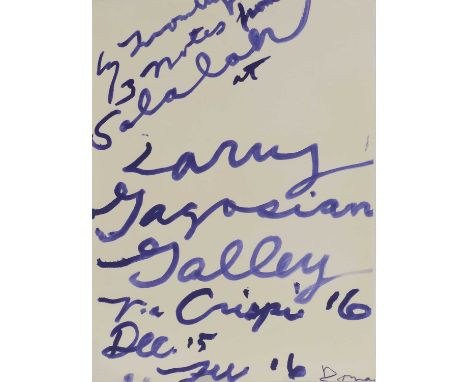 Cy Twombly
3 Notes from
Salalah
at
Larry
Gagosian
Galley
Via Crispi '16
Dec. '15
'16 Roma